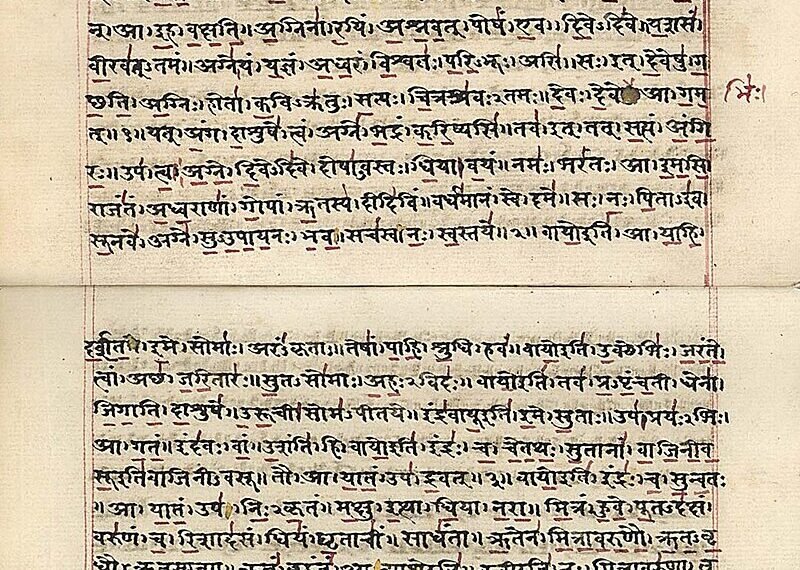 न्। आ। इह। वक्षति॥ अग्निना। रयिं। अश्नवत्। पोषं। एव। दिवेऽदिवे। यशसं।
वीरवत्ऽतमं॥ अग्ने। यं। यज्ञं। अध्वरं। विश्वतः। परिऽभूः। असि। सः। इत्। देवेषु। ग
छति॥ अग्निः। होता। कविऽक्रतुः। सत्यः। चित्रश्रवःऽतमः। देवः। देवे आ। गम
भिः।
त्॥१॥ यत्। अंग। दाशुषे। त्वं। अग्ने। भद्रं। करिष्यसि। तव। इत्। तत्। सत्यं। अंगि
रः॥ उप। त्वा। अग्ने। दिवेऽदिवे। दोषाऽवस्तः। धिया। वयं। नमः। भरंतः। आ। इमसि॥
राजंतं। अध्वराणां। गोपां। ऋतस्य। दीदिविं। वर्धमानं। स्वे। दमे॥ सः। नः। पिताऽइव।
सूनवे। अग्ने। सुऽउपायनः। भव। सचस्व। नः। स्वस्तये॥२॥ वायो इति। आ। याहि।
दर्शत। इमे। सोमाः। अरंऽकृताः। तेषां। पाहि। श्रुधि। हवं॥ वायो इति। उक्थेभिः। जरंते।
त्वां। अछ। जरितारः। सुतऽसोमाः। अहःऽविदः॥ वायो इति। तव। प्रऽपृंचती। धेना।
जिगाति। दाशुषे। उरूची। सोमऽपीतये॥ इंद्रवायू इति। इमे। सुताः। उप। प्रयःऽभिः।
आ। गतं। इंदवः। वां। उशंति। हि॥ वायो इति। इंद्रः। च। चेतथः। सुतानां। वाजिनीव
सू इति वाजिनीऽवसू। तौ। आ। यातं। उप। द्रवत्॥३॥ वायो इति। इंद्रः। च। सुन्वतः
। आ। यातं। उप। निःऽकृतं। मक्षु। इत्था। धिया। नरा॥ मित्रं। हुवे। पूतऽदक्षं।
वरुणं। च। रिशादसं। धियं। घृताचीं। साधंता॥ ऋतेन। मित्रावरुणौ। ऋतऽवृ